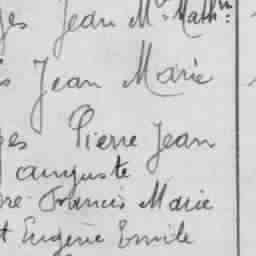 ges Jean M. Mathn
s Jean Marie
ges Pierre Jean
auguste
re Francis Marie
t Eugène Emile